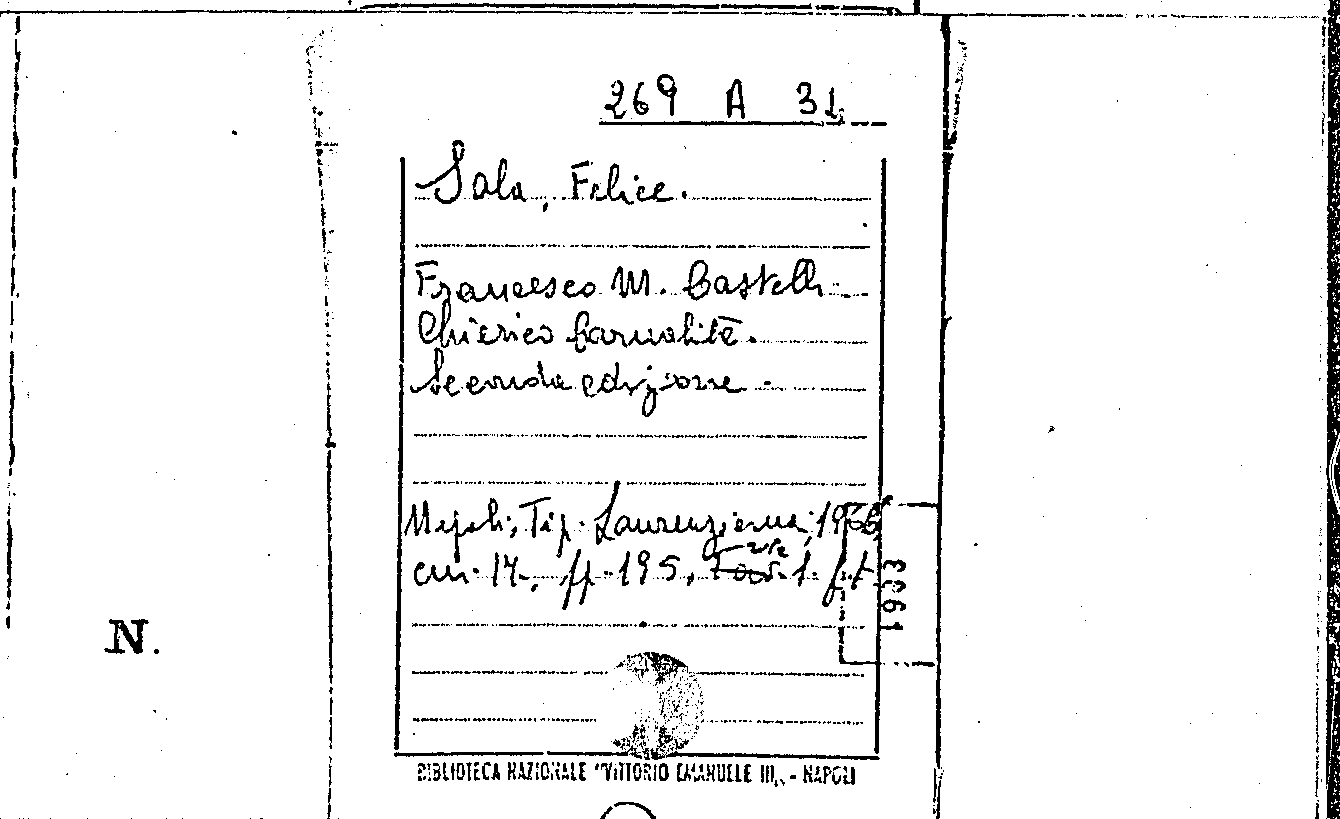 269 A 31
Sala, Felice.
Francesco M. Castelli
Chierico barnabita.
Seconda edizione
Napoli, Tip. Laurenziana,
cm. 17, pp. 195, 1. f. t.
N.
BIBLIOTECA NAZIONALE "VITTORIO EMANUELE III„ - NAPOLI